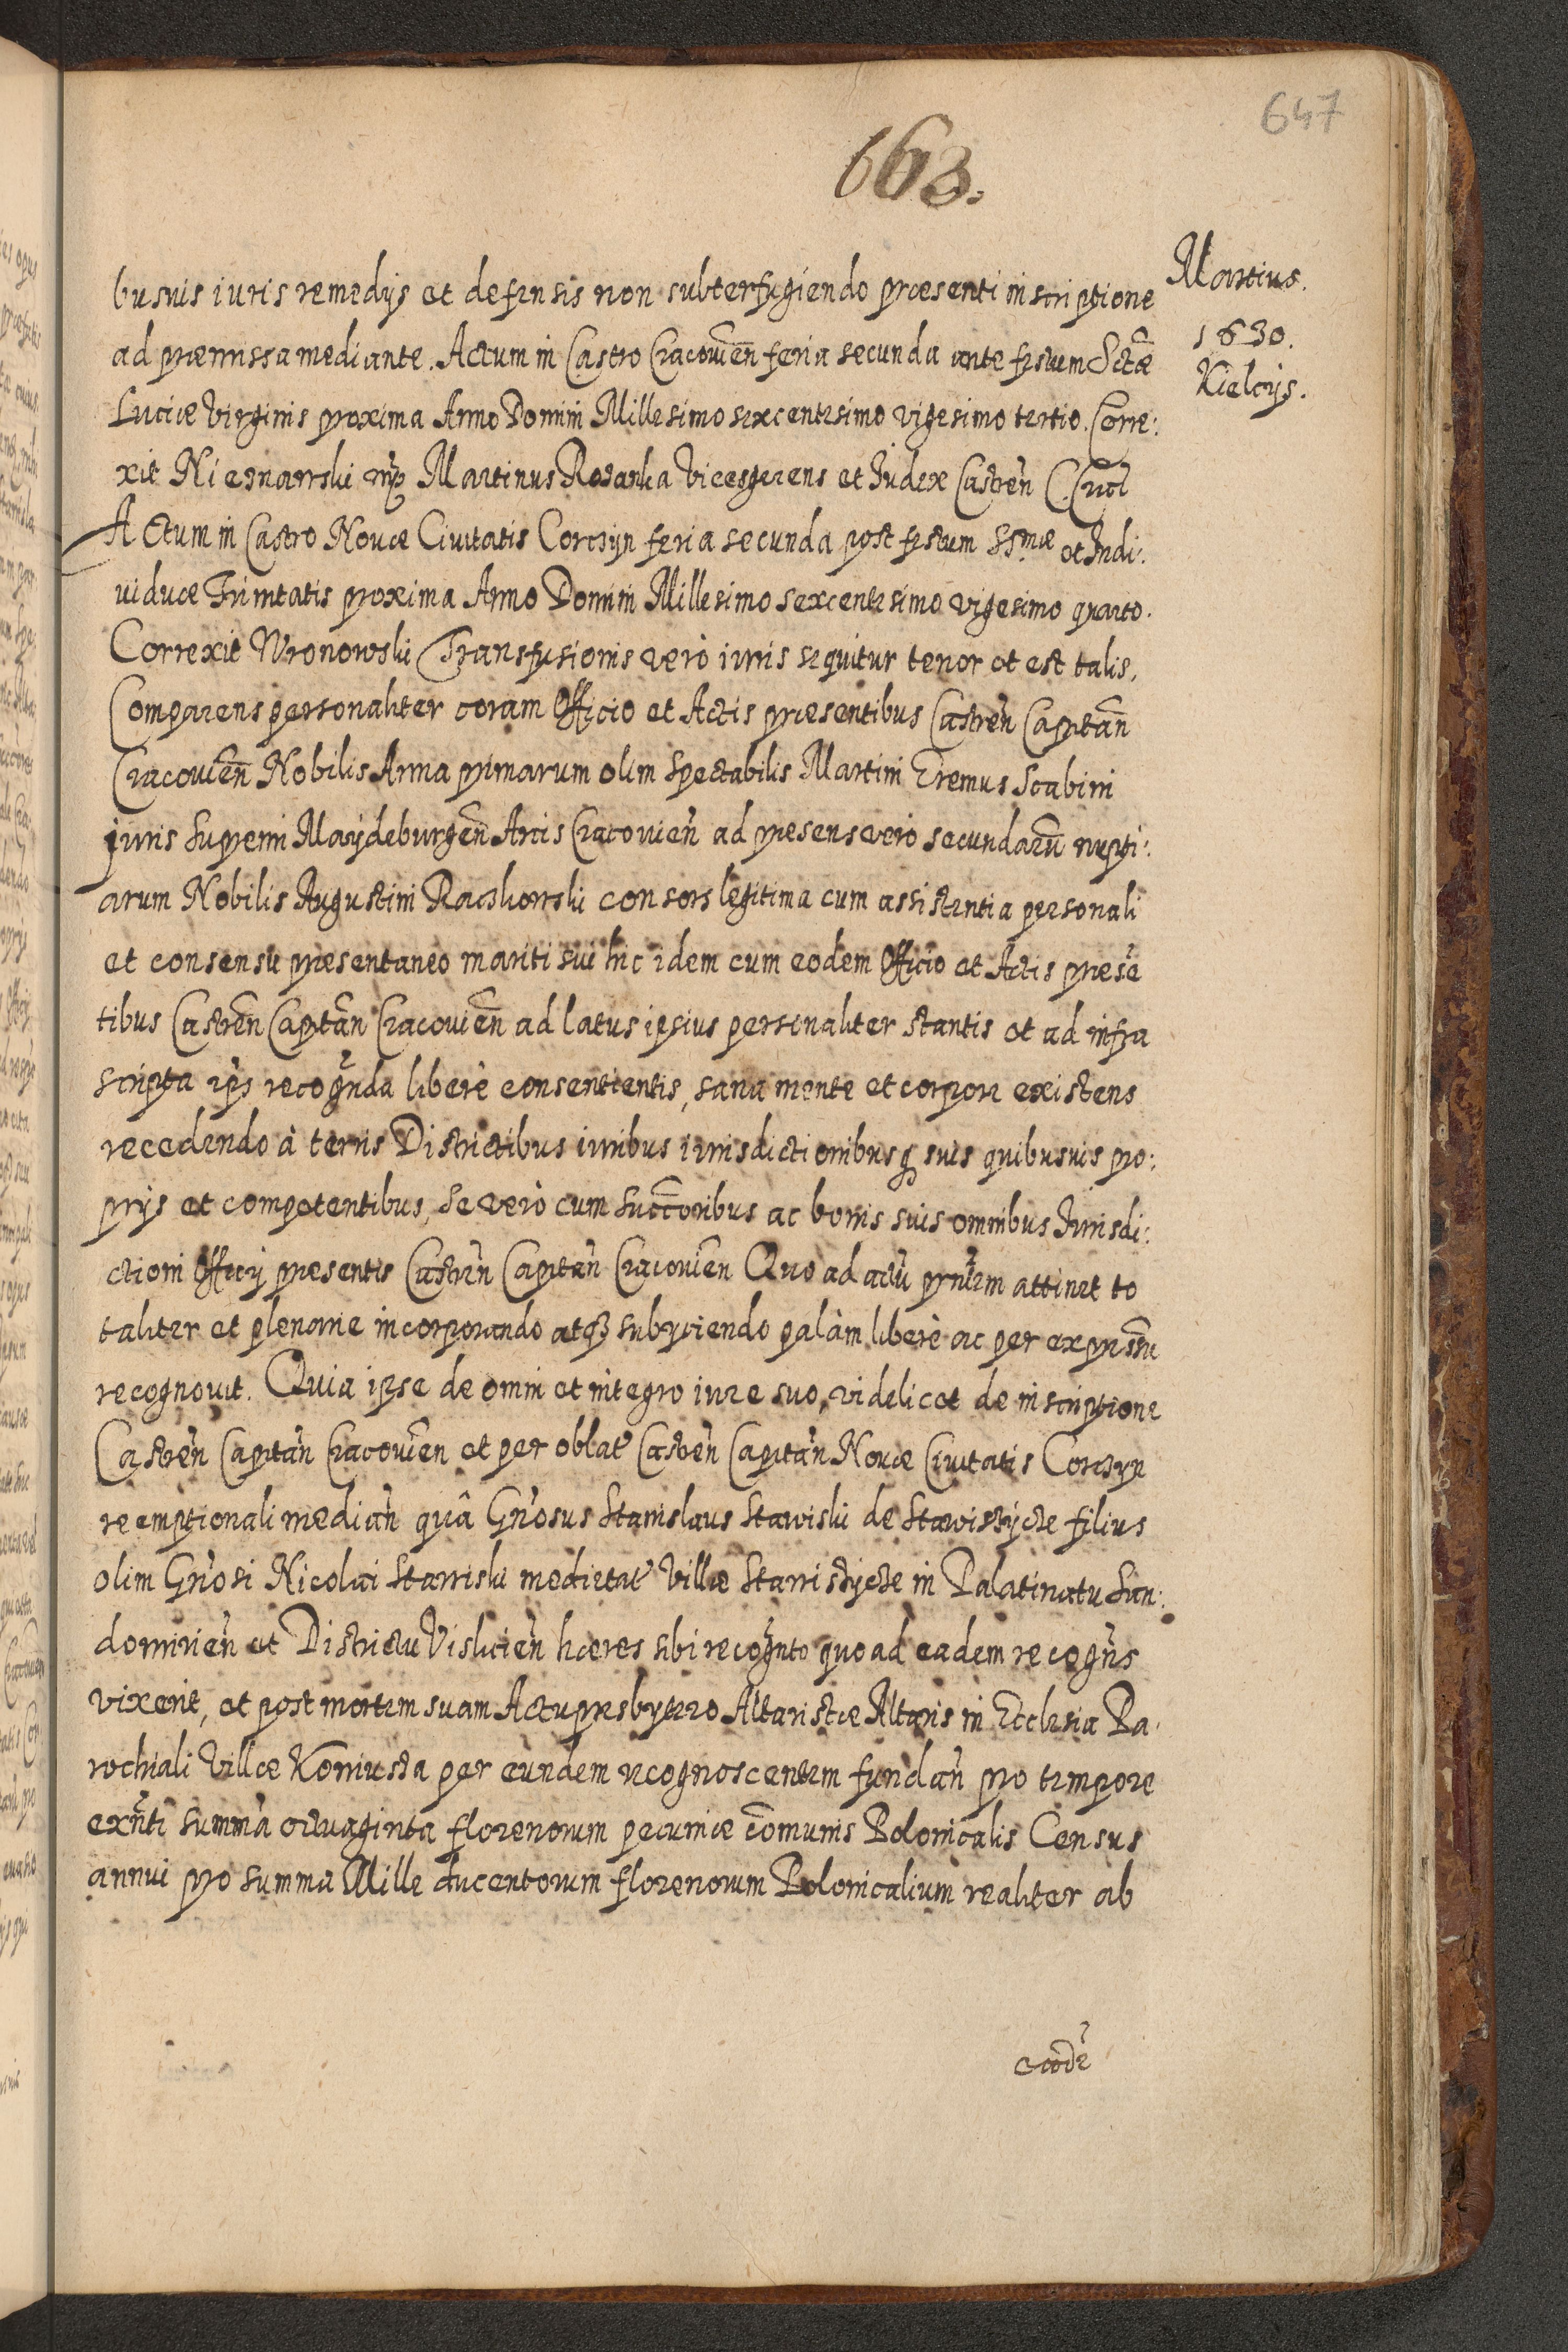 647
663.
Martius.
1630.
Kielcijs.
busuis iuris remedijs et defensis non subterfugiendo præsenti inscriptione
ad præmissa mediante. Actum in Castro Cracouien̄ feria secunda ante festum Sctæ
Luciæ Virginis proxima Anno Domini Millesimo sexcentesimo vigesimo tertio. Corre:
xit mp Martinus Rosanka Vicesgerens et Judex Castren̄
Actum in Castro Nouæ Ciuitatis Corczyn feria secunda post festum SSmæ et Indi:
uiduæ Trinitatis proxima Anno Domini Millesimo sexcentesimo vigesimo quarto.
Correxit Wronowski Transfusionis verò iuris sequitur tenor et est talis,
Comparens personaliter coram Officio et Actis præsentibus Castren̄ Capitan̄
Cracouien̄ Nobilis Anna primarum olim Spectabilis Martini Eremus Scabini
juris Supremi Maydeburgen̄ Arcis Cracouien̄ ad præsens verò secundarū nupti:
arum Nobilis Augustini Raczkowski consors legitima cum assistentia personali
et consensu præsentaneo mariti sui hic idem cum eodem Officio et Actis præsē
tibus Castren̄ Capitan̄ Cracouien̄ ad latus ipsius personaliter stantis et ad infra
scripta ips recog̃nda liberè consentientis, sana mente et corpore existens
recedendo à terris Districtibus iuribus iurisdictionibusq suis quibusuis pro:
prijs et competentibus, se verò cum succ̄oribus ac bonis suis omnibus Jurisdi:
ctioni Officij præsentis Castren̄ Capitan̄ Cracouien̄ Quo ad actū prñtem attinet to
taliter et plenarie incorporando atq3 subijciendo palàm liberè ac per expressū
recognouit. Quia ipse de omni et integro iure suo, videlicet de inscriptione
Castren̄ Capitan̄ Cracouien̄ et per oblat̄ Castren̄ Capitan̄ Nouæ Ciuitatis Corczyn
reemptionali median̄ quâ Gn̄osus Stanislaus Stawiski de Stawiszÿcze filius
olim Gn̄osi Nicolai Stawiski medietat̄ Villæ Stawiszÿcze in Palatinatu San:
domirien̄ et Districtu Vislicien̄ hæres sibi recog̃nto quo ad eadem recogn̄s
vixerit, et post mortem suam Actu præsbytero Altaristæ Altaris in Ecclesia Pa:
rochiali Villæ Koniusza per eundem recognoscentem fundan̄ pro tempore
exn̄ti summā octuaginta florenorum pecuniæ com̄unis Polonicalis Census
annui pro summa Mille ducentorum florenorum Polonicalium realiter ab
eodē